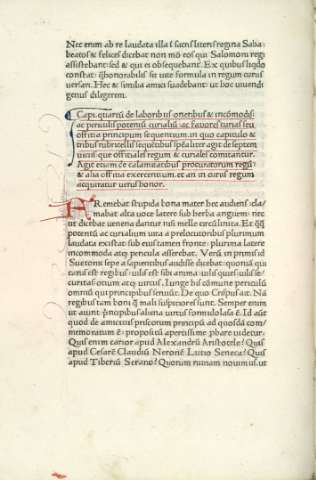 Nec enim ab re laudata illa ī sacris literis regina Saba.
beatos & felices dicebat non mō eos qui Salomoni regi
assistebant: sed & qui ei obsequebant̃. Ex quibus liqdo
constat: q̃ honorabilis sit uite formula in regum curiis
uersari. Hec & similia amici suadebant: ut hoc uiuendi
genus diligerem.
Capi. quartū de laboribus oneribus & incōmodis
ac periculis potentū curialiū ac fauores curiaꝝ seu
officia principum sequentium. in quo capitulo &
tribus rubricellis sequētibus spēaliter agit̃ de septem
uitiis que officiales regum & curiales comitantur.
Agit etiam de calamitatibus procuratorum regis:
& alia officia exercentium. et an in curiis regum
acquiratur uirus honor.
Remebat stupida bona mater hec audiens: cla
mabat alta uoce latere sub herba anguem: nec
ut dicebat uenena dantur nisi melle circūlinita. Et q̃q̃
potentū ac curialium uita a prelocutoribus plurimum
laudata existat: sub eius tamen fronte: plurima latere
incommoda atq; pericula asserebat. Verū in primis id
Suetonii sepe a sapientibus audisse dicebat: quoniā q̄
tunc est regibus uilis est sibi anima: uilis quies: uilis se
curitas: otium atq; uirtus. Iunge his cōmune periculū
omniū qui principibus seruiūt. De quo Crispus ait. Nā
regibus tam boni q̄ mali suspectiores sunt. Semper enim
ut aiunt: prīcipibus aliena uirtus formidolosa ē. Id aūt
quod de amicitiis priscorum principū ad quosdā com/
memoratum ē: propositū apertissime phare uidetur.
Quis enim carior apud Alexandrū Aristotele? Quis
apud Cesarē Claudiū Neronē Lutio Seneca? Quis
apud Tiberiū Seiano? Quorum ruinam nouimus. ut